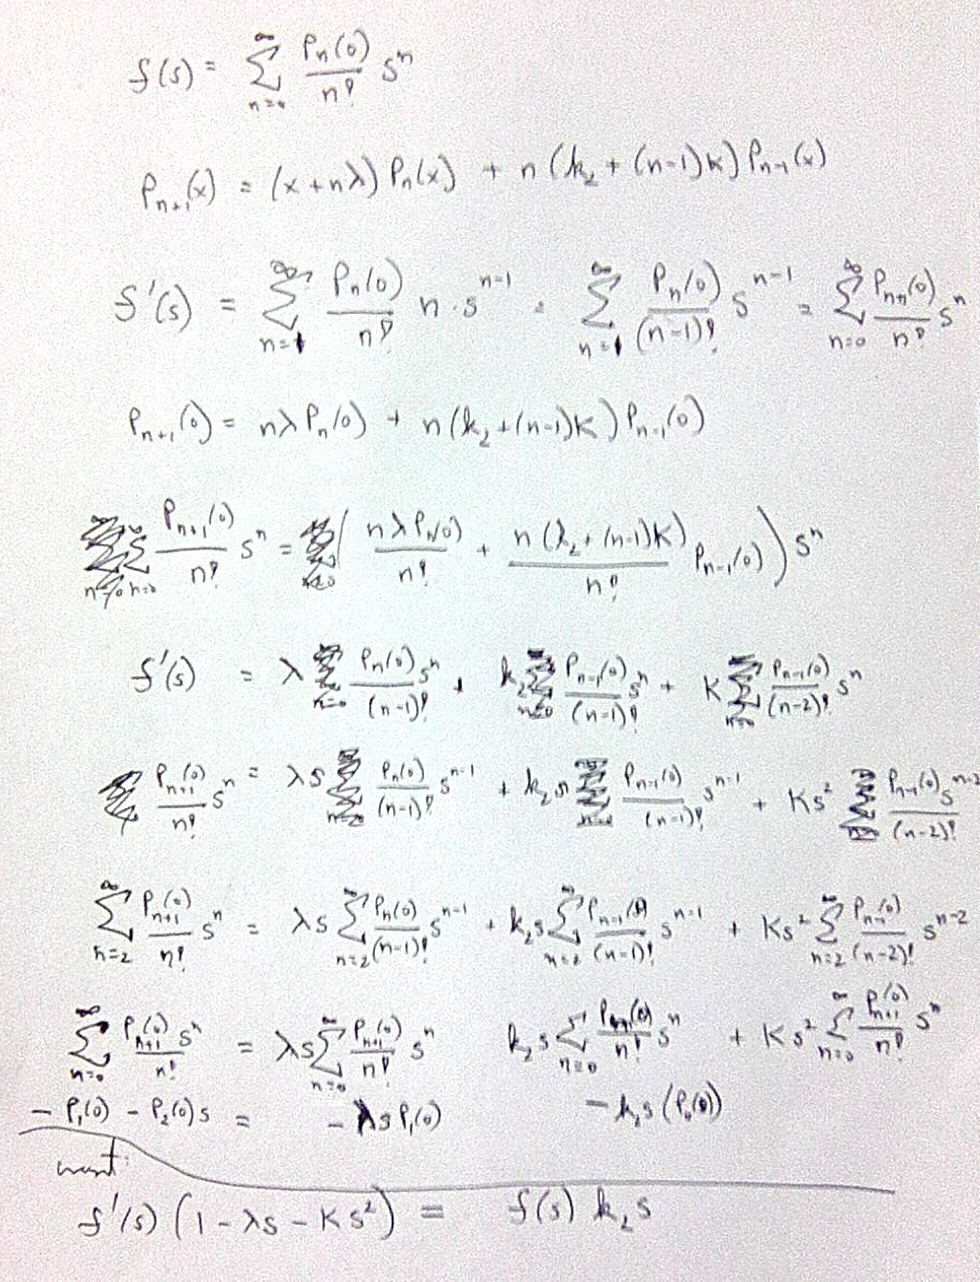 f(s) = ∑_{n=0}^{∞} P_n(0)/n! s^n
P_{n+1}(x) = (x + nλ) P_n(x) + n (k_2 + (n-1)K) P_{n-1}(x)
f'(s) = ∑_{n=1}^{∞} P_n(0)/n! n · s^{n-1} = ∑_{n=1}^{∞} P_n(0)/(n-1)! s^{n-1} = ∑_{n=0}^{∞} P_{n+1}(0)/n! s^n
P_{n+1}(0) = nλ P_n(0) + n (k_2 + (n-1)K) P_{n-1}(0)
∑_{n=0}^{∞} P_{n+1}(0)/n! s^n = ( nλ P_n(0)/n! + n (k_2 + (n-1)K)/n! P_{n-1}(0) ) s^n
f'(s) = λ P_n(0)/(n-1)! s^n + k_2 P_{n-1}(0)/(n-1)! s^n + K P_{n-1}(0)/(n-2)! s^n
P_{n+1}(0)/n! s^n = λs P_n(0)/(n-1)! s^{n-1} + k_2 s P_{n-1}(0)/(n-1)! s^{n-1} + Ks^2 P_{n-1}(0)/(n-2)! s^{n-2}
∑_{n=2}^{∞} P_{n+1}(0)/n! s^n = λs ∑_{n=2}^{∞} P_n(0)/(n-1)! s^{n-1} + k_2 s ∑_{n=2}^{∞} P_{n-1}(0)/(n-1)! s^{n-1} + Ks^2 ∑_{n=2}^{∞} P_{n-1}(0)/(n-2)! s^{n-2}
∑_{n=0}^{∞} P_{n+1}(0)/n! s^n = λs ∑_{n=0}^{∞} P_{n+1}(0)/n! s^n k_2 s ∑_{n=0}^{∞} /n! s^n + Ks^2 ∑_{n=0}^{∞} P_{n+1}(0)/n! s^n
- P_1(0) - P_2(0)s = - λs P_1(0) - k_2 s (P_0(0))
want:
f'(s) (1 - λs - Ks^2) = f(s) k_2 s